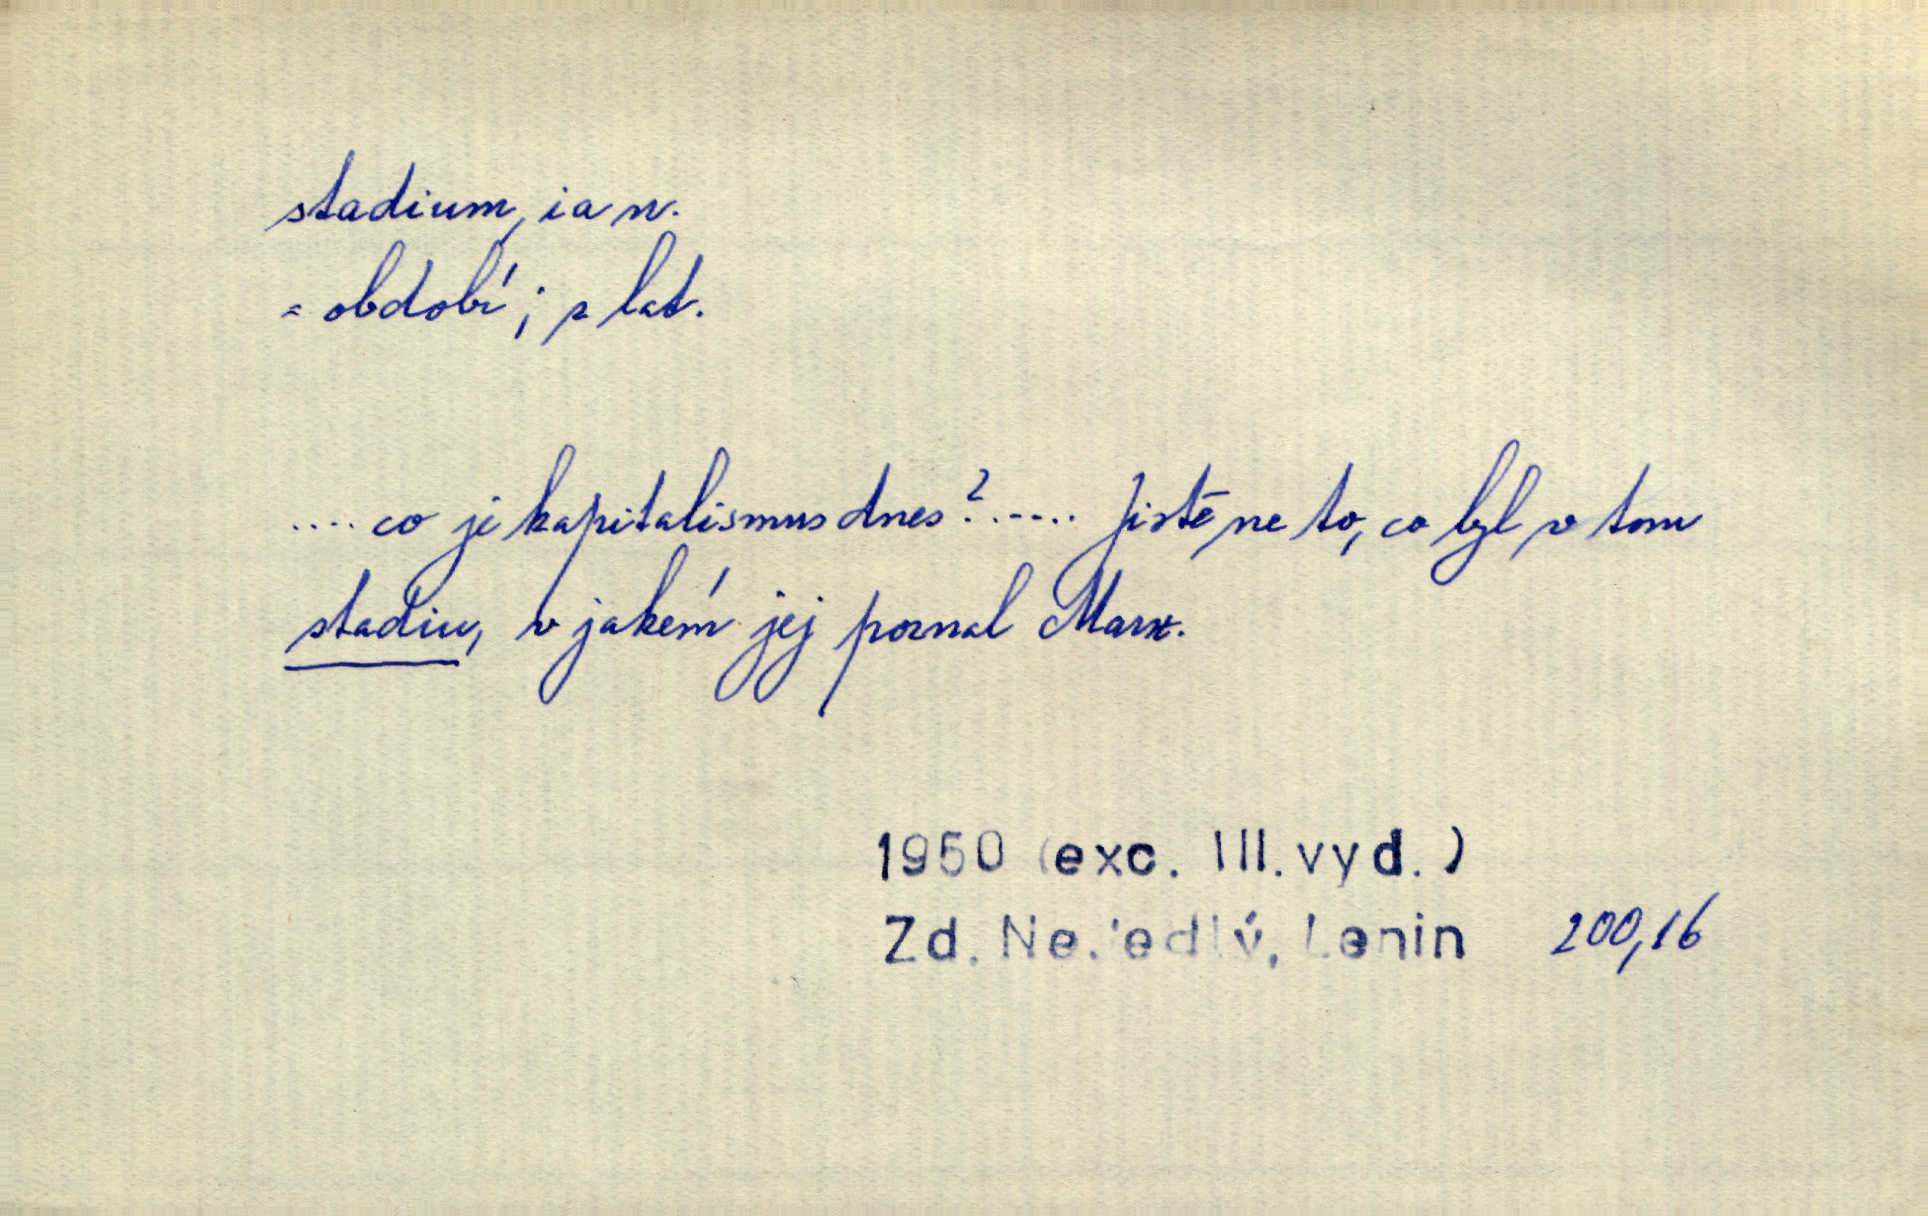 stadium, ia n.
= období; z lat.
.... co je kapitalismus dnes?..... Jistě ne to, co byl v tom
stadiu, v jakém jej poznal Marx.
1950 (exc. III. vyd.)
Zd. Nejedlý, Lenin 200,16